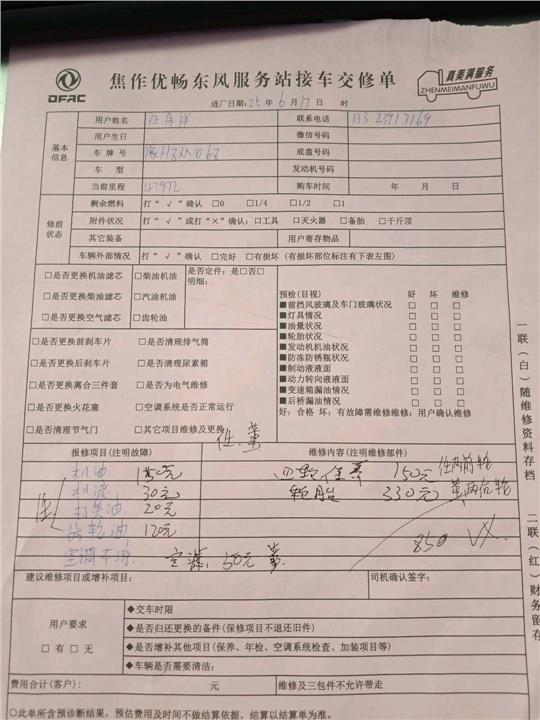 DFAC
焦作优畅东风服务站接车交修单
真美满服务
ZHENMEIMANFUWU
进厂日期：25年6月17日 时
基本信息
用户姓名
联系电话 133 2391 7169
用户生日
微信号码
车牌号
底盘号码
车型
发动机号码
当前里程 47972
购车时间 年 月 日
修前状态
剩余燃料 打“√”确认 □0 □1/4 □1/2 □1
附件状况 打“√”或打“×”确认：□工具 □灭火器 □备胎 □千斤顶
其它装备
用户寄存物品
车辆外部情况 打“√”确认 □完好 □有损坏（有损坏部位标注有下表左图）
□是否更换机油滤芯 □柴油机油 是否定件：是□否□
明细：
□是否更换柴油滤芯 □汽油机油
□是否更换空气滤芯 □齿轮油
□是否更换前刹车片 □是否清理排气筒
□是否更换后刹车片 □是否清理尿素箱
□是否更换离合三件套 □是否为电气维修
□是否更换火花塞 □空调系统是否正常运行
□是否清理节气门 □其它项目维修及更换
预检(目视) 好 坏 维修
■前挡风玻璃及车门玻璃状况 □ □ □
■灯具情况 □ □ □
■油量状况 □ □ □
■轮胎状况 □ □ □
■发动机机油状况 □ □ □
■防冻防锈瓶状况 □ □ □
■制动液液面 □ □ □
■动力转向液液面 □ □ □
■变速箱漏油情况 □ □ □
■后桥漏油情况 □ □ □
好：合格 坏：有故障需维修维修：用户确认维修
报修项目(注明故障)
维修内容(注明维修部件)
机油 150元
150元
机滤 30元
330元
打黄油 20元
齿轮油 120元
850
空调不凉
50元
建议维修项目或增补项目：
司机确认签字：
用户要求
□有□无
◆交车时限
◆是否归还更换的备件(保修项目不退还旧件)
◆是否增补其他项目(保养、年检、空调系统检查、加装项目等)
◆车辆是否需要清洁：
费用合计(客户)： 元
维修及三包件不允许带走
○此单所含预诊断结果，预估费用及时间不做结算依据，结算以结算单为准。
一联（白）随维修资料存档
二联（红）财务留存